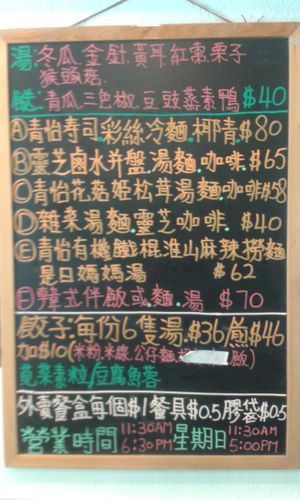 湯:冬瓜.金針.黃耳.紅棗.栗子
猴頭菇
餸:青瓜.三色椒.豆豉蒸素鴨 $40
Ⓐ青怡寿司.彩絲冷麵.椰青.$80
Ⓑ靈芝鹵水弁盤.湯麵.咖啡.$65
Ⓒ青怡花菇姬松茸湯麵.咖啡$58
Ⓓ雜菜湯麵.靈芝咖啡. $40
Ⓔ青怡有機 棍淮山麻辣撈麵
是日媽媽湯 $62
Ⓕ韓式伴飯或麵.湯 $70
餃子:每份6隻湯.$36/煎$46
加$10(米粉.米線.公仔麵. 飯)
素粒/豆腐魚蓉
外賣餐盒每個$1餐具$0.5膠袋$0.5
營業時間 11:30AM 星期日 11:30AM
6:30PM 5:00PM